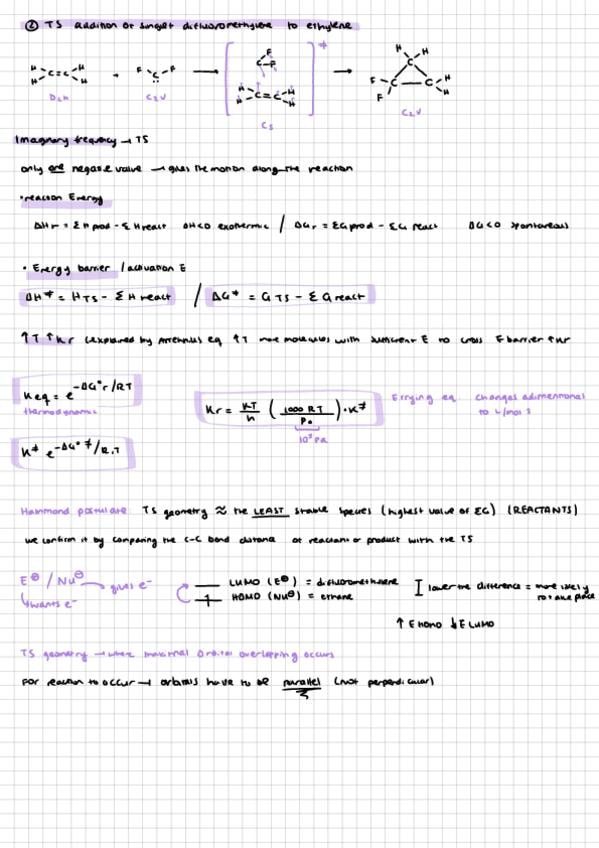 ② TS addition of singlet difluoromethylene to ethylene
H H C = C H H + F C F → [ F C F H H C = C H H ]≠ → H H C F F C C H H
D2h C2V Cs C2V
Imaginary frequency → TS
only one negative value → gives the motion along the reaction
• reaction Energy
ΔHr = ΣH prod - ΣH react ΔH<0 exothermic / ΔGr = ΣG prod - ΣG react ΔG<0 spontaneous
• Energy barrier / activation E
ΔH≠ = H TS - ΣH react / ΔG≠ = G TS - ΣG react
↑T ↑Kr (explained by Arrhenius eq ↑T more molecules with sufficient E to cross E barrier ↑Kr
Keq = e^-ΔG°r/RT
thermodynamic
Kr = KT/h (1000 RT/P₀) · K≠ Erying eq. changes adimentional to L/mol s
10⁵ Pa
K≠ e^-ΔG°≠/R.T
Hammond postulate: TS geometry ≈ the LEAST stable species (highest value of EG) (REACTANTS)
we confirm it by comparing the C-C bond distance of reactant or product with the TS
E⊕ / Nu⊖ → gives e-
↳ wants e-
LUMO (E⊕) = difluoromethylene
HOMO (Nu⊖) = ethane
I lower the difference = more likely to take place
↑ E HOMO ↓ E LUMO
TS geometry → where maximal orbital overlapping occurs
For reaction to occur → orbitals have to be parallel (not perpendicular)